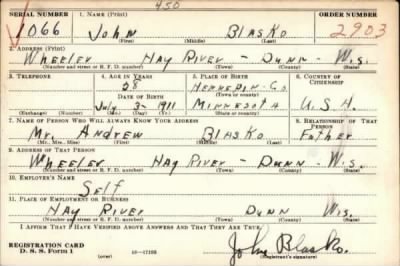 450
SERIAL NUMBER 1. NAME (Print) ORDER NUMBER
1066 John Blasko 2903
(First) (Middle) (Last)
2. ADDRESS (Print)
Wheeler Hay River - Dunn - Wis.
(Number and street or R. F. D. number) (Town) (County) (State)
3. TELEPHONE 4. AGE IN YEARS 5. PLACE OF BIRTH 6. COUNTRY OF CITIZENSHIP
28 Hennepin - Co
DATE OF BIRTH (Town or county)
July 3 - 1911 Minnesota U.S.A.
(Exchange) (Number) (Mo.) (Day) (Yr.) (State or country)
7. NAME OF PERSON WHO WILL ALWAYS KNOW YOUR ADDRESS 8. RELATIONSHIP OF THAT PERSON
Mr. Andrew Blasko Father
(Mr., Mrs., Miss) (First) (Middle) (Last)
9. ADDRESS OF THAT PERSON
Wheeler Hay River - Dunn - Wis.
(Number and street or R. F. D. number) (Town) (County) (State)
10. EMPLOYER'S NAME
Self
11. PLACE OF EMPLOYMENT OR BUSINESS
Hay River Dunn Wis.
(Number and street or R. F. D. number) (Town) (County) (State)
I AFFIRM THAT I HAVE VERIFIED ABOVE ANSWERS AND THAT THEY ARE TRUE.
REGISTRATION CARD
D. S. S. Form 1 (over) 16-17105 John Blasko.
(Registrant's signature)